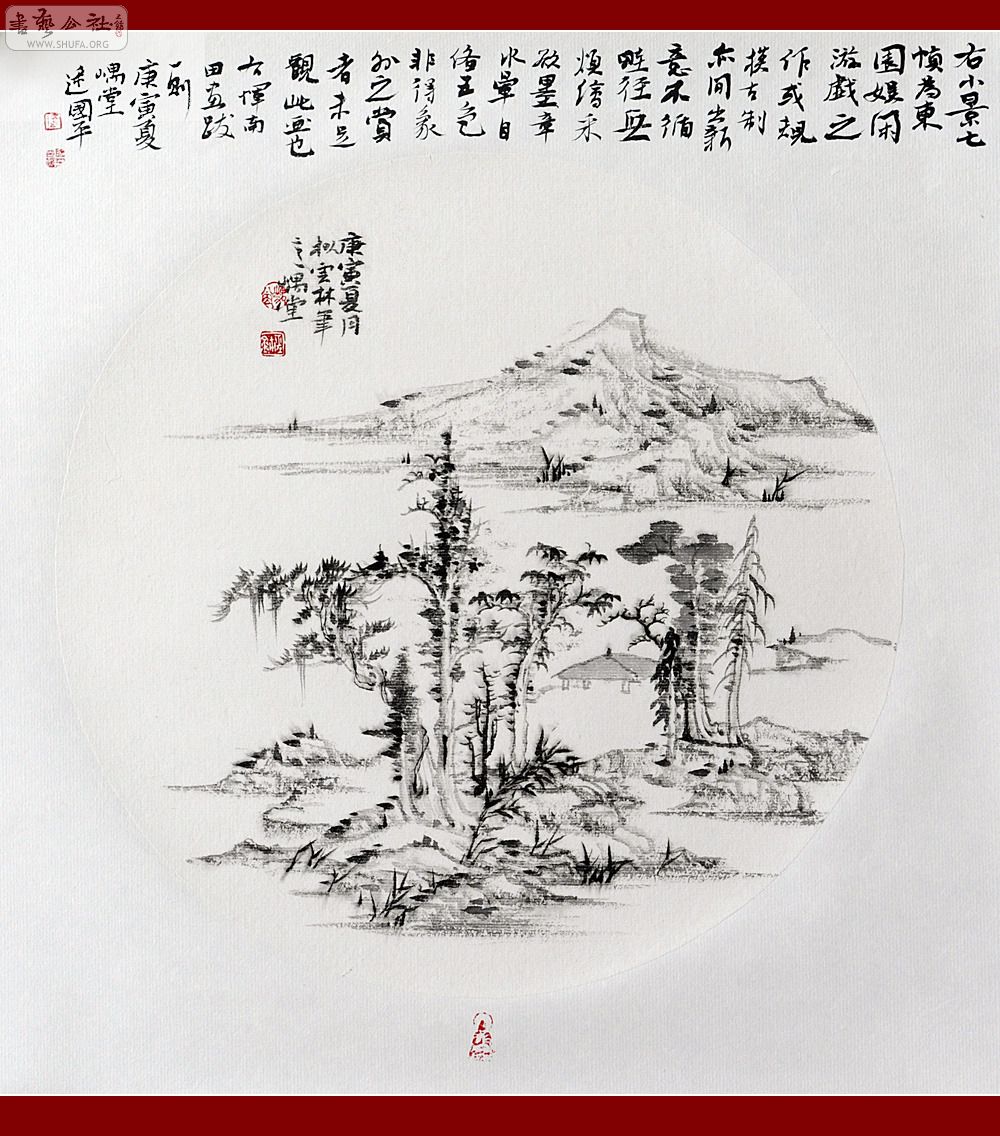 書藝公社
WWW.SHUFA.ORG
右小景七
幀為東
園娛閑
游戲之
作或規
橅古制
亦間出新
意不循
畦徑無
煩繪采
欲墨章
水暈自
備五色
非得象
外之賞
者未足
觀此畫也
右惲南
田畫跋
一則
庚寅夏
嵎堂
國平
庚寅夏月
拟雲林筆
意嵎堂